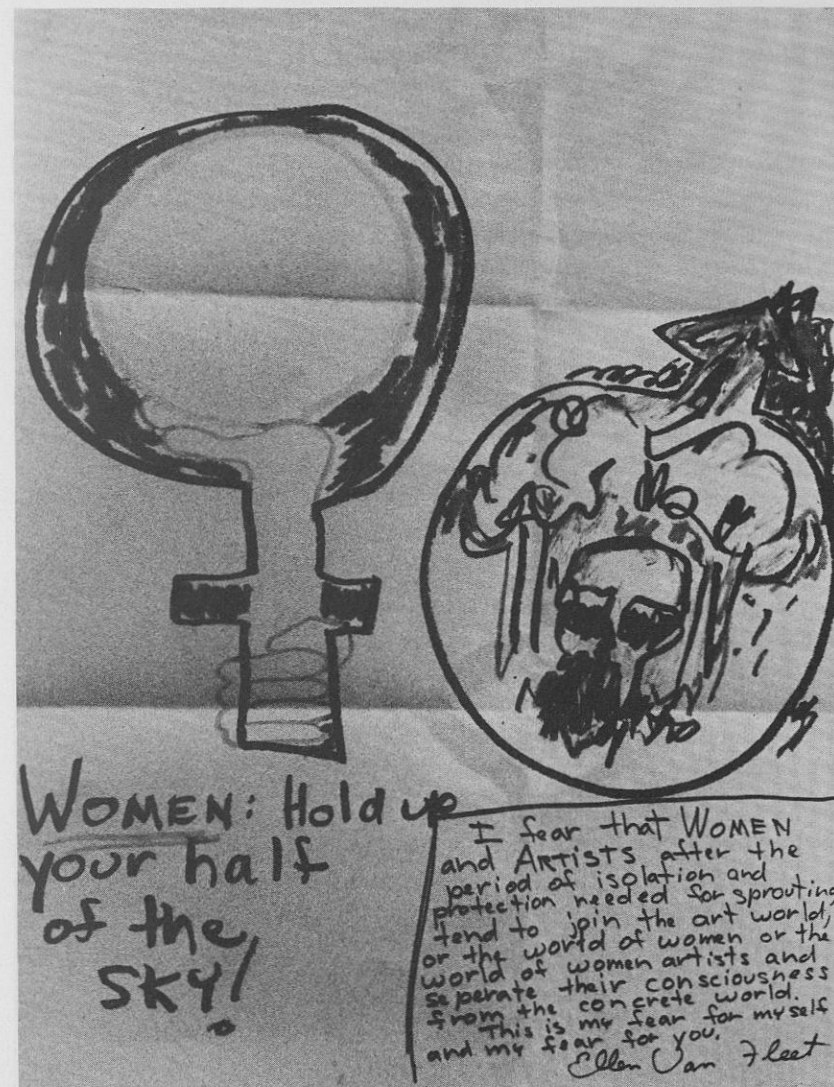 WOMEN: Hold up
your half
of the
SKY!
I fear that WOMEN
and ARTISTS after the
period of isolation and
protection needed for sprouting,
tend to join the art world,
or the world of women or the
world of women artists and
seperate their consciousness
from the concrete world.
This is my fear for myself
and my fear for you.
Ellen Van Fleet